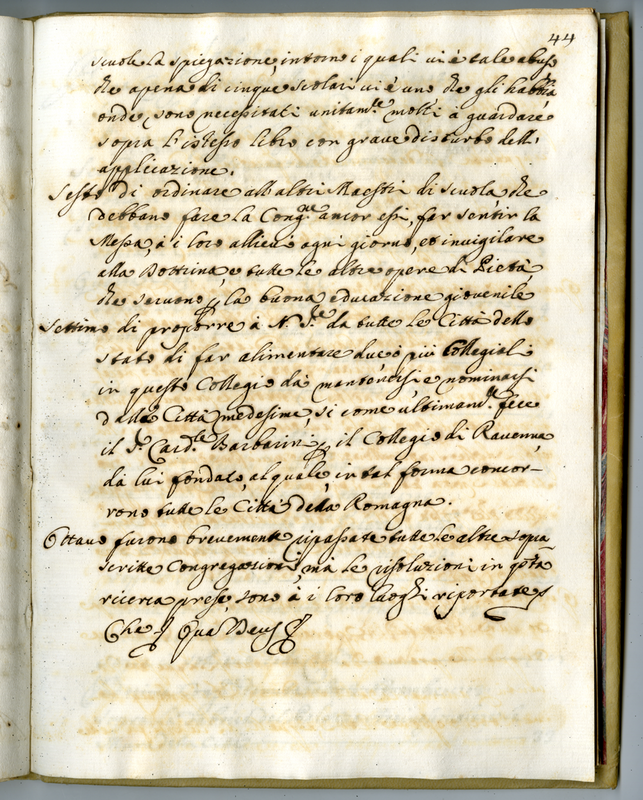 44
scuole la spiegazione, intorno i quali vi è tale abuso
che apena di cinque scolari vi è uno che gli habbia
onde sono necessitati unitam.te molti à guardare
sopra l'istesso libro con grave disturbo dell'
applicazione.
Sesto di ordinare alli altri Maestri di scuola, che
debbano fare la Cong.ne ancor essi, far sentir la
Messa, à i loro allievi ogni giorno, et invigilare
alla Dottrina, e tutte le altre opere di Pietà
che servono p la buona educazione giovenile
Settimo di proporre à N. S.re da tutte le Città dello
stato di far alimentare due, ò più Collegiali
in questo Collegio da mantenersi e nominarsi
dalle Città medesime, si come ultimam.te fece
il S.r Card.le Barbarini p il Collegio di Ravenna
da lui fondato, al quale in tal forma concor-
rono tutte le Città della Romagna.
Ottavo furono brevemente ripassate tutte le altre sopra
scritte Congregazioni, mà le risoluzioni in q.sta
ricerca prese, sono à i loro luoghi riportate